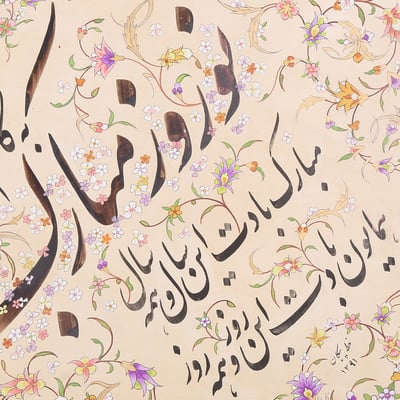 نوروز
مبارک
مبارک بادت این سال و همه سال
همایون بادت این روز و همه روز
۱۳۹۱